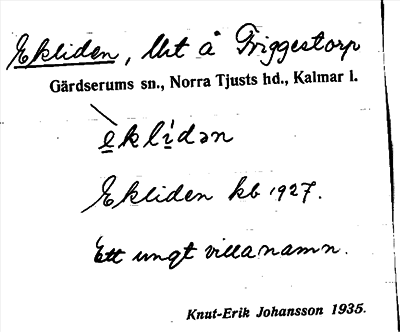 Ekliden, lht å Friggestorp
Gärdserums sn., Norra Tjusts hd., Kalmar l.
e̲klí̲dən
Ekliden kb 1927.
Ett ungt villanamn.
Knut-Erik Johansson 1935.